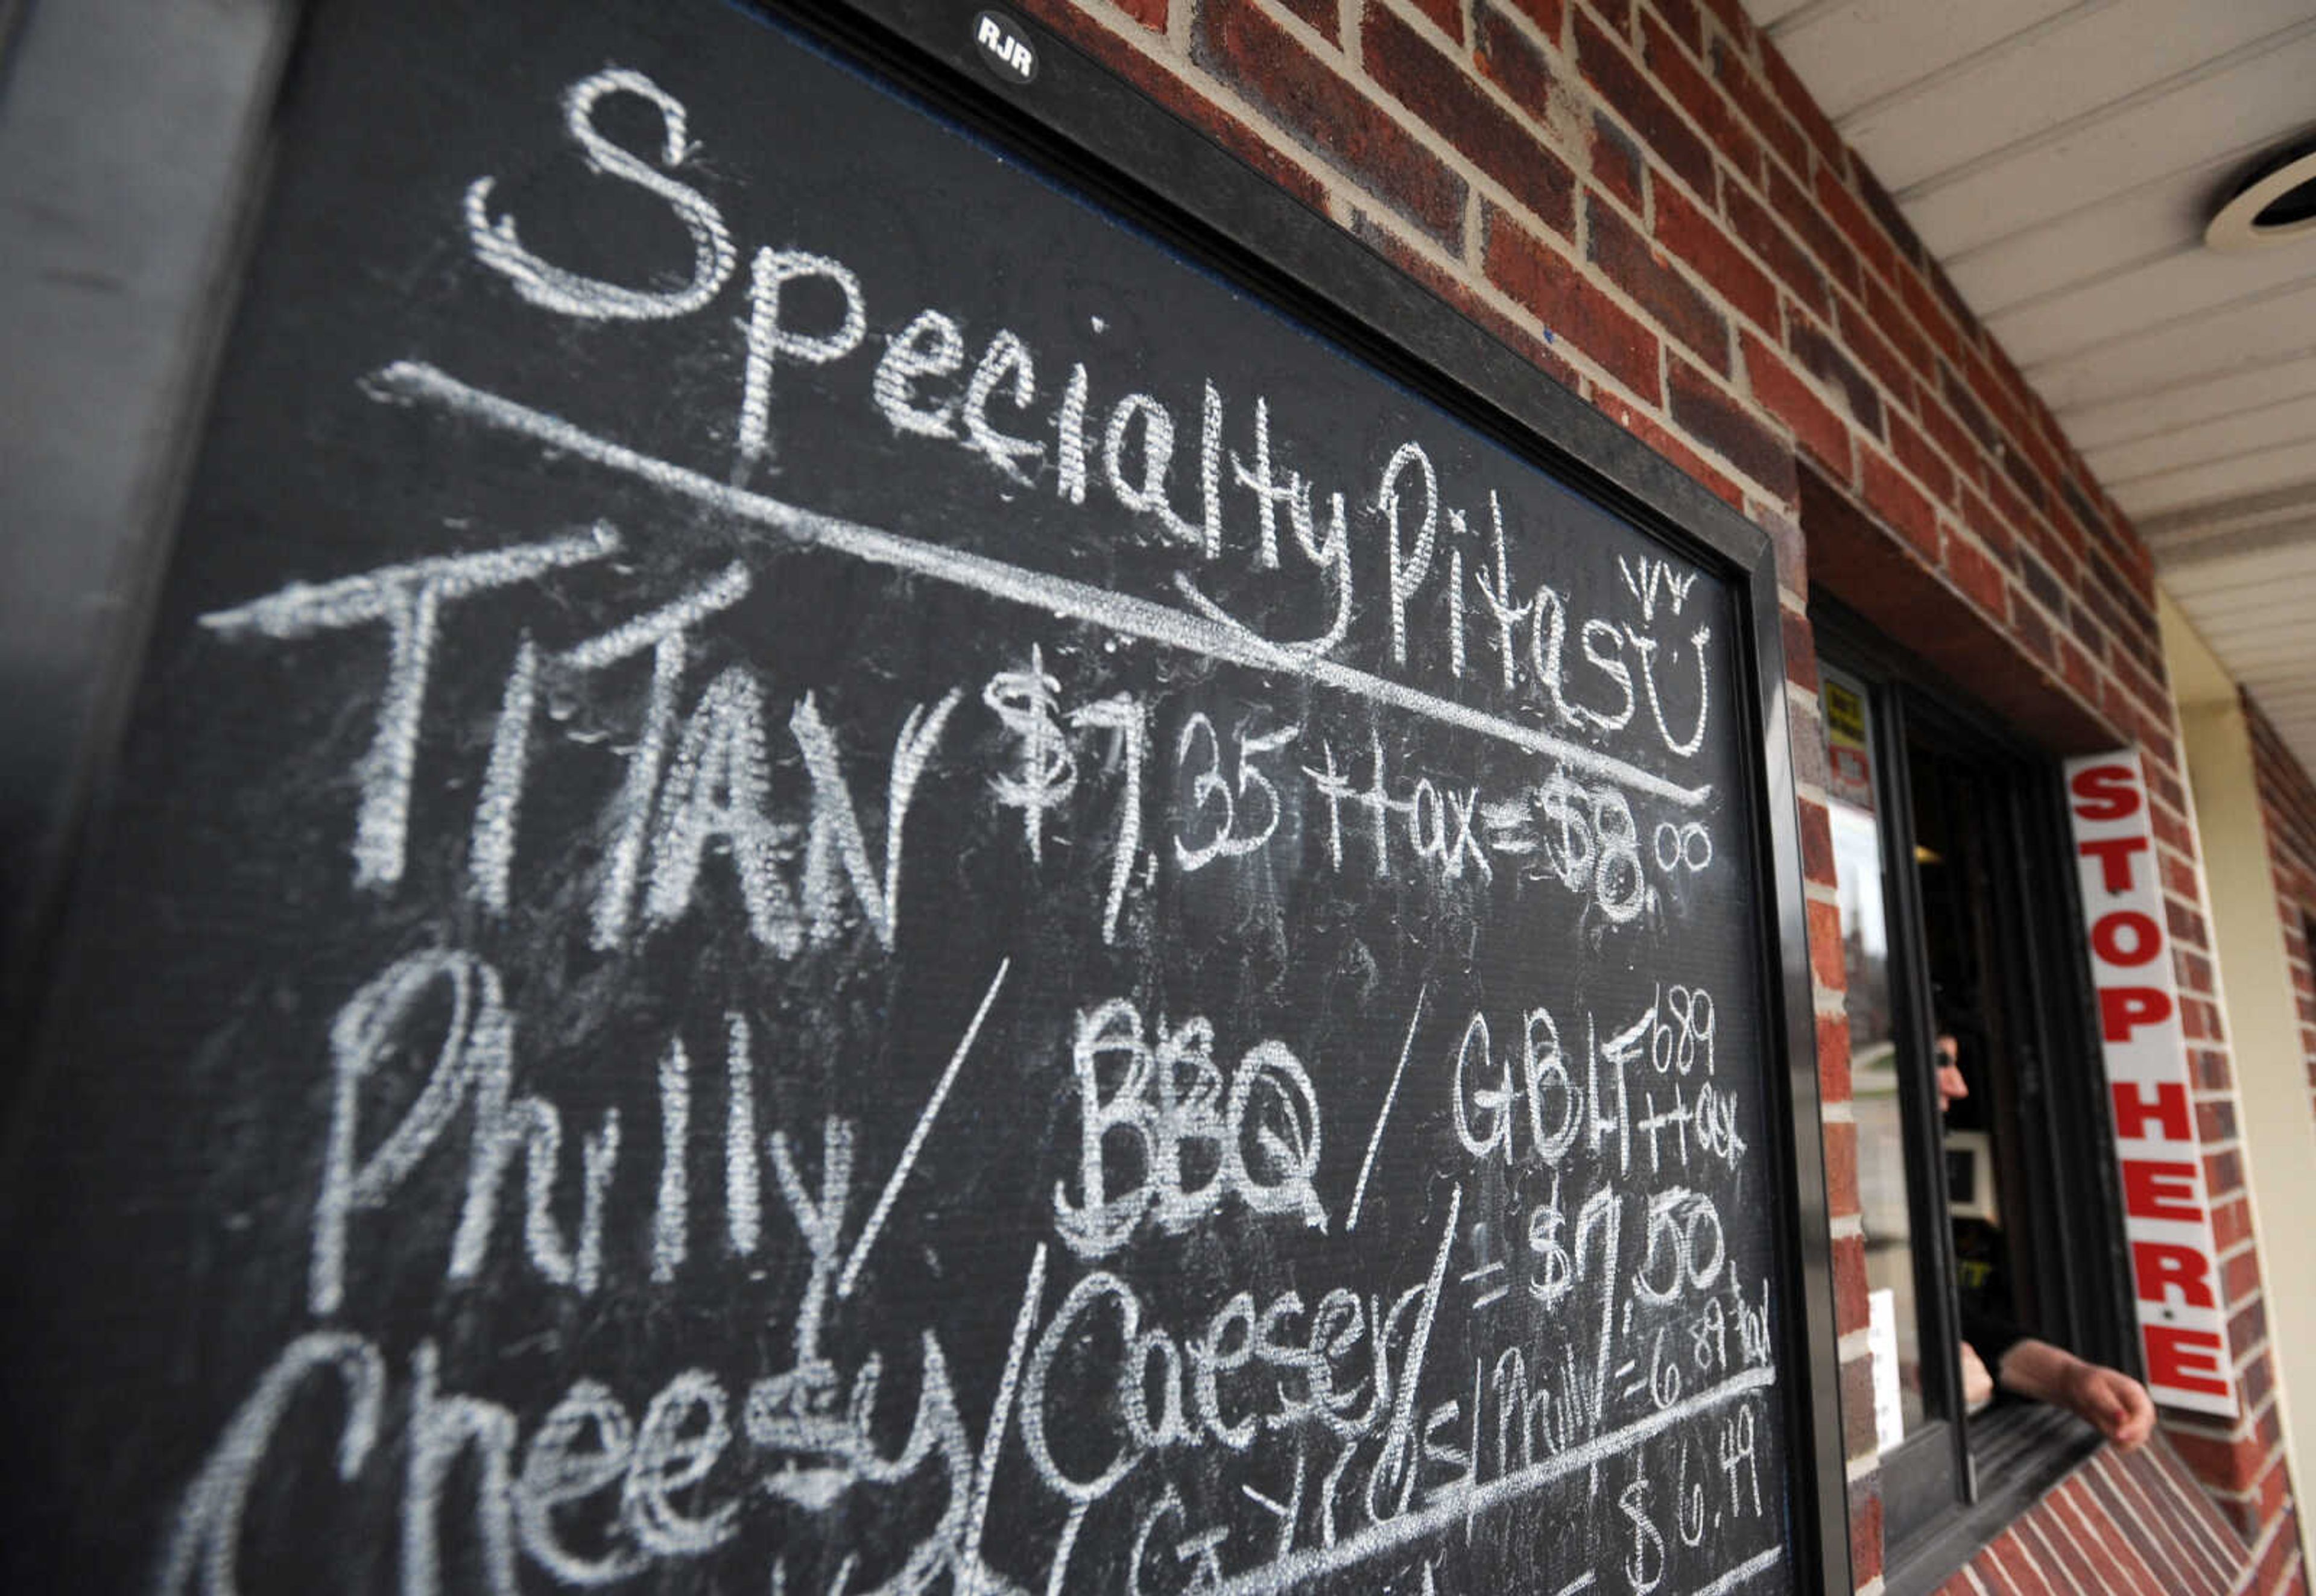 RJR
Specialty Pitas
TITAN $7.35 + tax = $8.00
Philly / BBQ / GBLT 689 + tax
= $7.50
Cheesy / Caeser / Gyros / Philly = 6.89 + tax
$6.49
STOP HERE